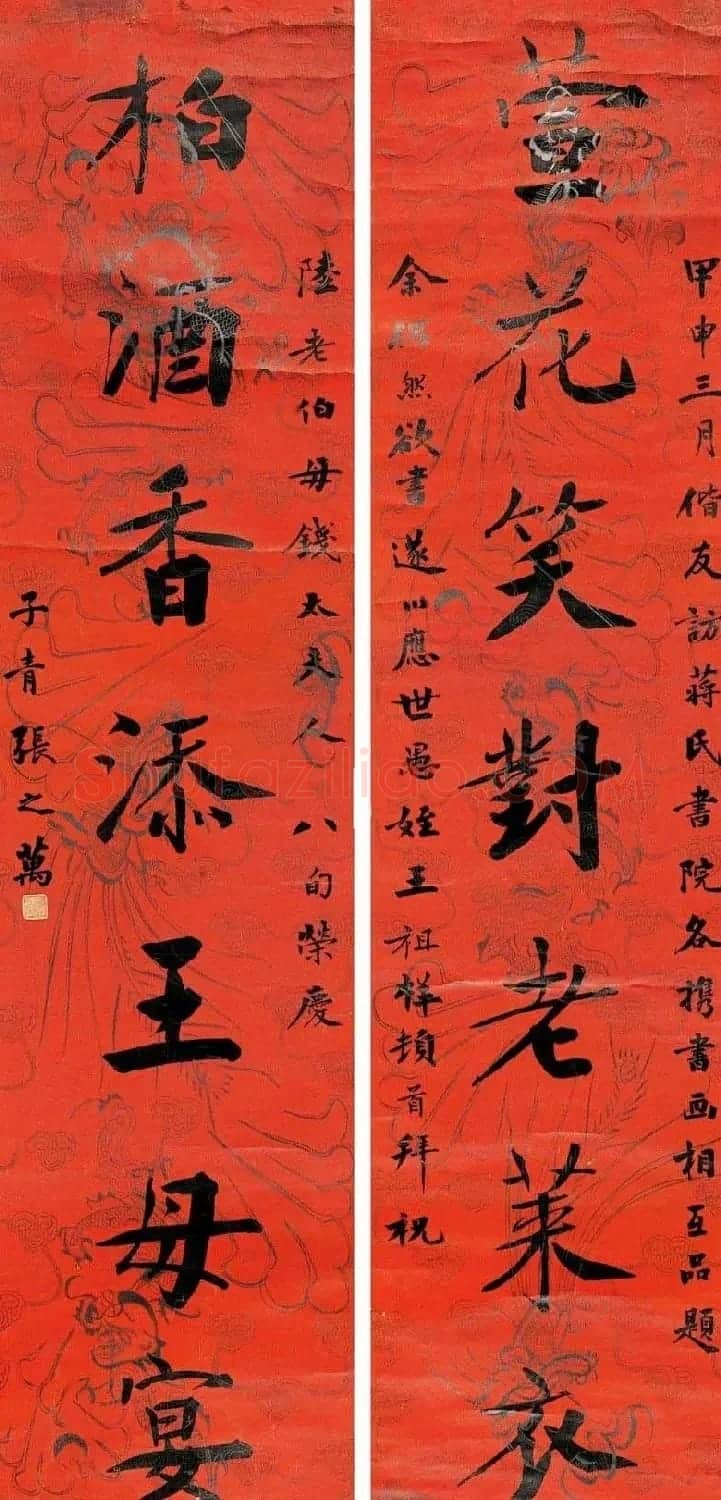 甲申三月偕友訪蔣氏書院各携書画相互品題
萱花笑對老萊衣
余然欲書遂以應世愚姪王祖样頓首拜祝
陸老伯母錢太夫人 八旬榮慶
柏酒香添王母宴
子青張之萬
Shufaziliao.COM